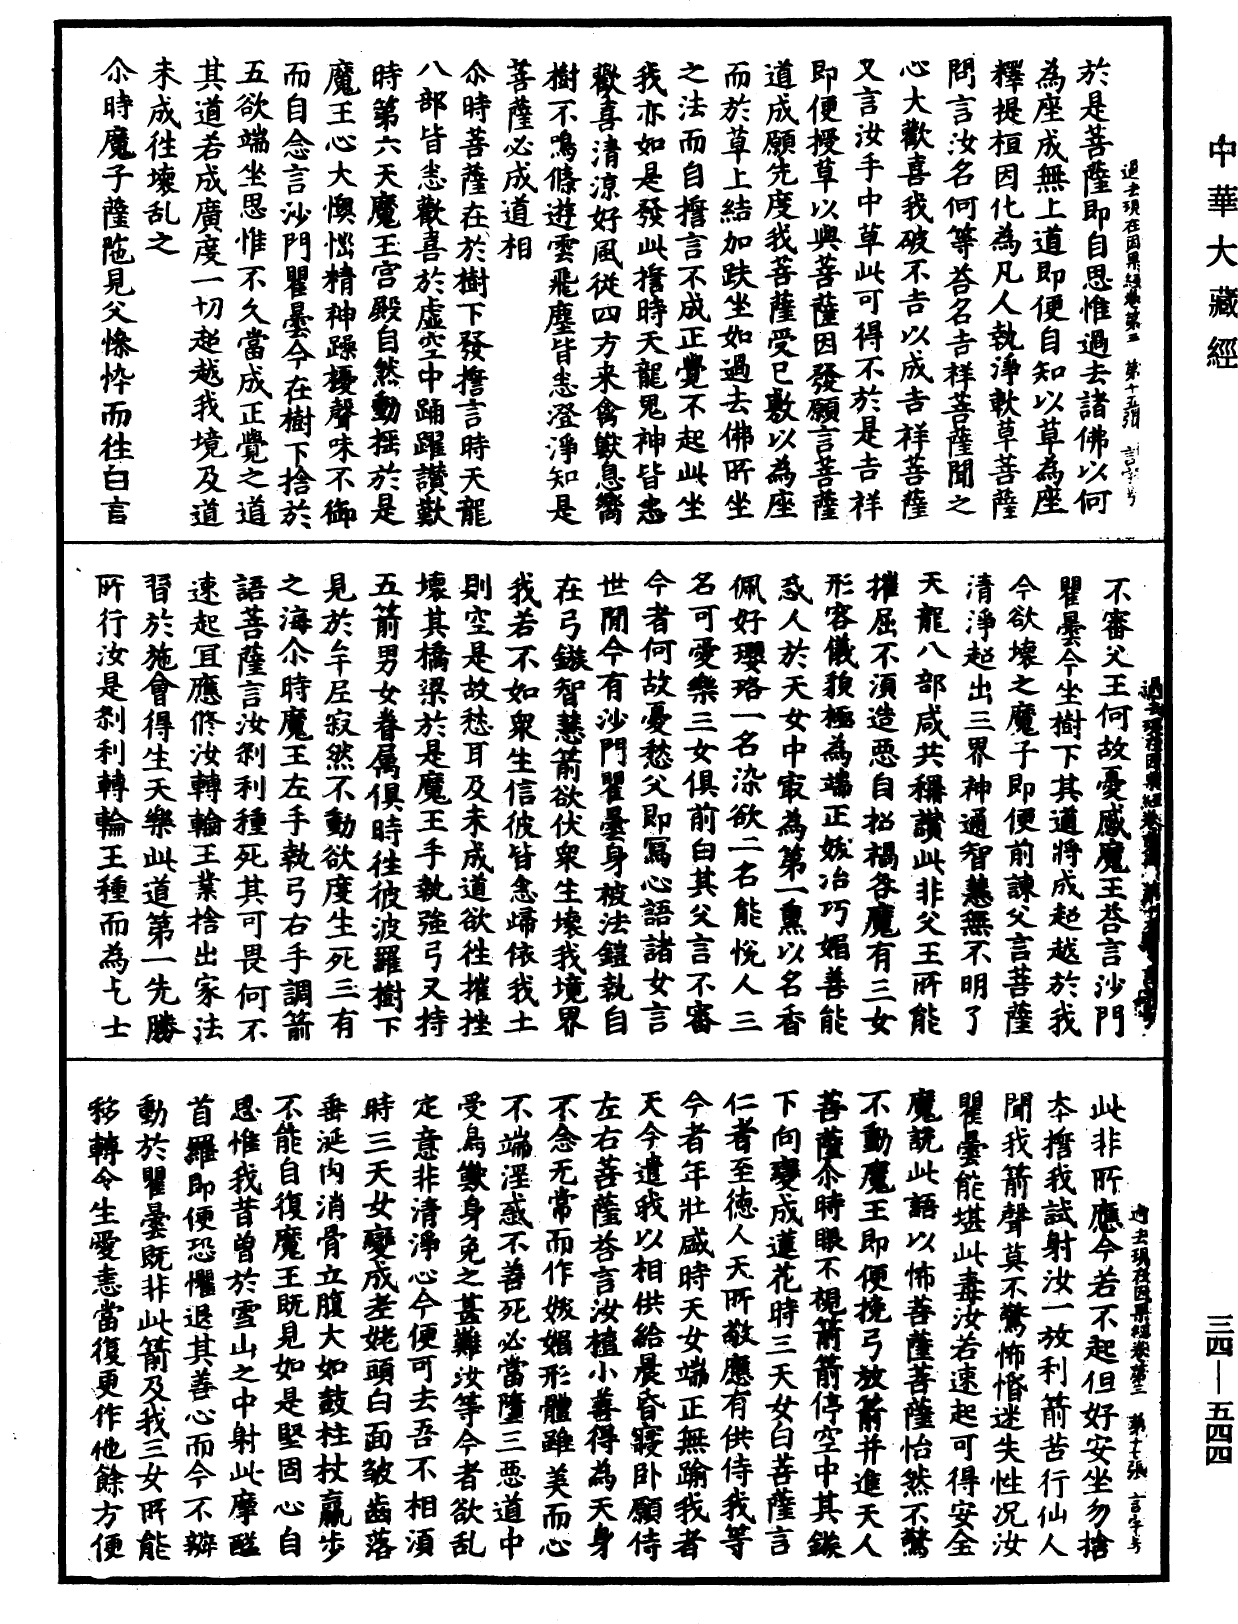 中華大藏經
過去現在因果經卷第三 第十五張 言字号
於是菩薩即自思惟過去諸佛以何
為座成無上道即便自知以草為座
釋提桓因化為凡人執淨軟草菩薩
問言汝名何等荅名吉祥菩薩聞之
心大歡喜我破不吉以成吉祥菩薩
又言汝手中草此可得不於是吉祥
即便授草以與菩薩因發願言菩薩
道成願先度我菩薩受已敷以為座
而於草上結加趺坐如過去佛所坐
之法而自擔言不成正覺不起此坐
我亦如是發此擔時天龍鬼神皆悉
歡喜清涼好風從四方来禽獸息嚮
樹不鳴條遊雲飛塵皆悉澄淨知是
菩薩必成道相
尒時菩薩在於樹下發擔言時天龍
八部皆悉歡喜於虛空中踊躍讃歎
時第六天魔王宫殿自然動揺於是
魔王心大懊惱精神躁擾聲味不御
而自念言沙門瞿曇今在樹下捨於
五欲端坐思惟不久當成正覺之道
其道若成廣度一切超越我境及道
未成往壞亂之
尒時魔子薩陁見父慘忰而往白言
不審父王何故憂慼魔王荅言沙門
瞿曇今坐樹下其道將成超越於我
今欲壞之魔子即便前諫父言菩薩
清淨超出三界神通智慧無不明了
天龍八部咸共稱讃此非父王所能
摧屈不須造惡自招禍咎魔有三女
形容儀貌極為端正妖冶巧媚善能
惑人於天女中㝡為第一熏以名香
佩好瓔珞一名染欲二名能悅人三
名可愛樂三女俱前白其父言不審
今者何故憂愁父即寫心語諸女言
世間今有沙門瞿曇身被法鎧執自
在弓鏃智慧箭欲伏衆生壞我境界
我若不如衆生信彼皆悉歸依我土
則空是故愁耳及未成道欲往摧挫
壞其橋梁於是魔王手執強弓又持
五箭男女眷属俱時往彼波羅樹下
見於牟尼寂然不動欲度生死三有
之海尒時魔王左手執弓右手調箭
語菩薩言汝刹利種死其可畏何不
速起冝應修汝轉輪王業捨出家法
習於施會得生天樂此道第一先勝
所行汝是刹利轉輪王種而為乞士
過去現在因果經卷第三 第十七張 言字号
此非所應今若不起但好安坐勿捨
本擔我試射汝一放利箭苦行仙人
聞我箭聲莫不驚怖惛迷失性况汝
瞿曇能堪此毒汝若速起可得安全
魔說此語以怖菩薩菩薩怡然不驚
不動魔王即便挽弓放箭并進天人
菩薩尒時眼不視箭箭停空中其鏃
下向變成蓮花時三天女白菩薩言
仁者至德人天所敬應有供侍我等
今者年壯盛時天女端正無踰我者
天今遣我以相供給晨昏寢卧願侍
左右菩薩荅言汝植小善得為天身
不念无常而作妖媚形體雖美而心
不端淫惑不善死必當墮三惡道中
受鳥獸身免之甚難汝等今者欲亂
定意非清淨心今便可去吾不相須
時三天女變成老姥頭白面皺齒落
垂涎肉消骨立腹大如皷柱杖羸步
不能自復魔王既見如是堅固心自
思惟我昔曾於雪山之中射此摩醯
首羅即便恐懼退其善心而今不辦
動於瞿曇既非此箭及我三女所能
移轉令生愛恚當復更作他餘方便
三四—五四四